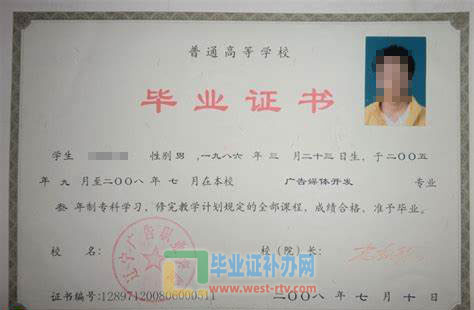 普通高等学校
毕业证书
学生 性别 男,一九八六年 三 月二十三日生,于二〇〇五
年 九 月至二〇〇八 年 七 月在本校 广告媒体开发 专业
叁 年制专科学习,修完教学计划规定的全部课程,成绩合格,准予毕业。
校 名: 校(院)长:
辽宁广告职业
毕业证补办网
www.west-rtv.com
证书编号:128971200806000511
二〇〇八 年 七 月 十 日